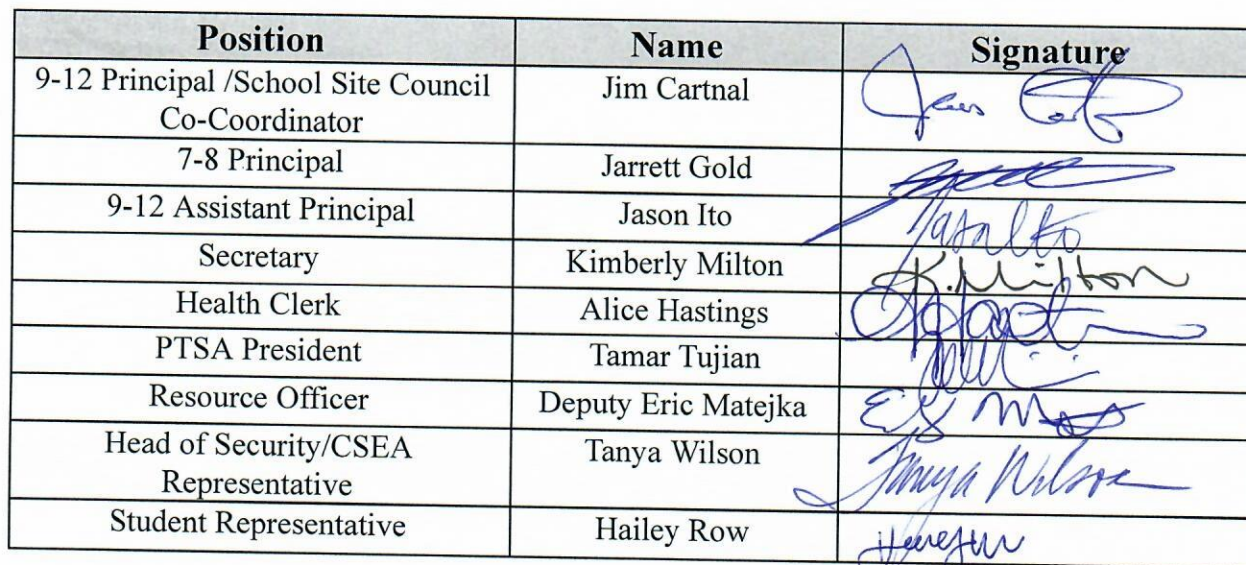 Position Name Signature
9-12 Principal /School Site Council Jim Cartnal
Co-Coordinator
7-8 Principal Jarrett Gold
9-12 Assistant Principal Jason Ito Jason Ito
Secretary Kimberly Milton K. Milton
Health Clerk Alice Hastings
PTSA President Tamar Tujian
Resource Officer Deputy Eric Matejka
Head of Security/CSEA Tanya Wilson Tanya Wilson
Representative
Student Representative Hailey Row